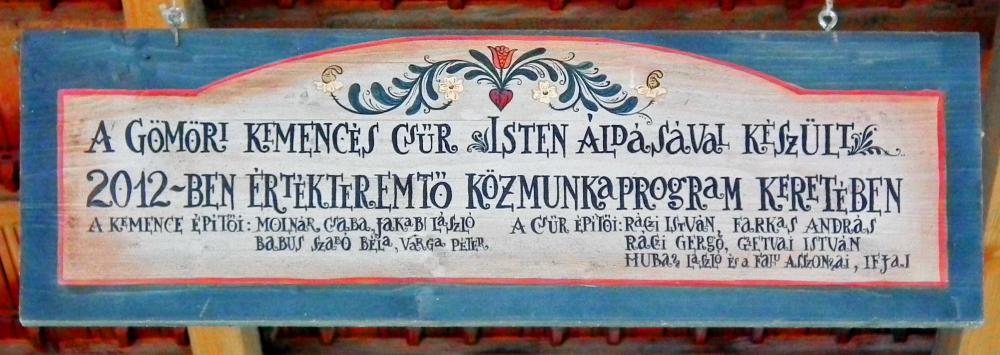 A GÖMÖRI KEMENCÉS CSŰR ISTEN ÁLDÁSÁVAL KÉSZÜLT
2012-BEN ÉRTÉKTEREMTŐ KÖZMUNKAPROGRAM KERETÉBEN
A KEMENCE ÉPÍTŐI: MOLNÁR CSABA, JAKABI LÁSZLÓ
BABUS SZABÓ BÉLA, VARGA PÉTER.
A CSŰR ÉPÍTŐI: RÁCI ISTVÁN, FARKAS ANDRÁS
RÁCI GERGŐ, GETVAI ISTVÁN
HUBAI LÁSZLÓ ÉS A FALU ASSZONYAI, IFJAI